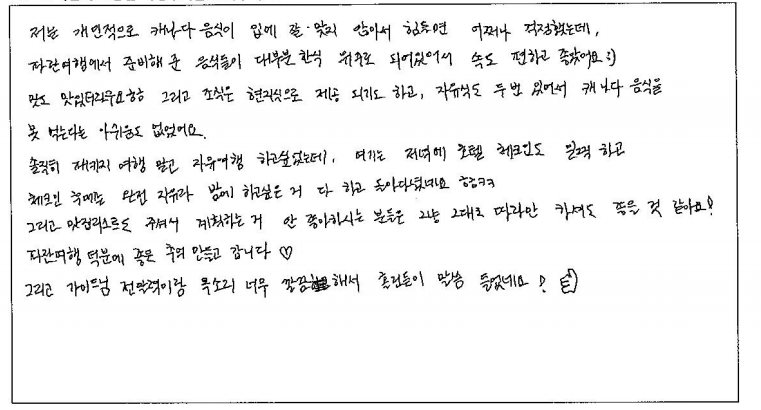 저는 개인적으로 캐나다 음식이 입에 잘 맞지 않아서 힘들면 어쩌나 걱정했는데,
파란여행에서 준비해 준 음식들이 대부분 한식 위주로 되어있어서 속도 편하고 좋았어요:)
맛도 맛있더라구요ㅎㅎ 그리고 조식은 현지식으로 제공 되기도 하고, 자유식도 두번 있어서 캐나다 음식을
못 먹는다는 아쉬움도 없었어요.
솔직히 패키지 여행 말고 자유여행 하고싶었는데, 여기는 저녁에 호텔 체크인도 일찍 하고
체크인 후에는 완전 자유라 밤에 하고싶은 거 다 하고 돌아다녔네요 ㅎㅎㅋㅋ
그리고 맛집리스트도 주셔서 계획하는 거 안 좋아하시는 분들은 그냥 그대로 따라만 가셔도 좋을 것 같아요!
파란여행 덕분에 좋은 추억 만들고 갑니다 ♡
그리고 가이드님 전달력이랑 목소리 너무 깔끔해서 홀린듯이 말씀 들었네요!